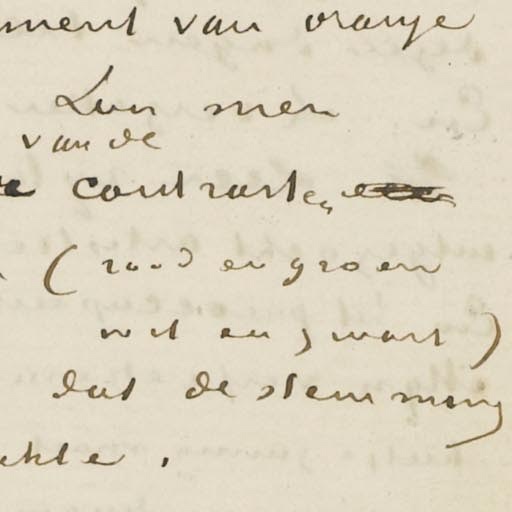 ment van oranje
kun men
van de
contrasten
(rood en groen
wit en zwart)
dat de stemming